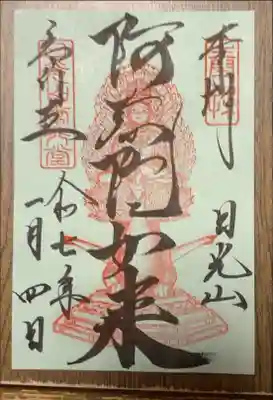 奉拝
日光山
阿弥陀如来
常行堂
令和七年
一月四日